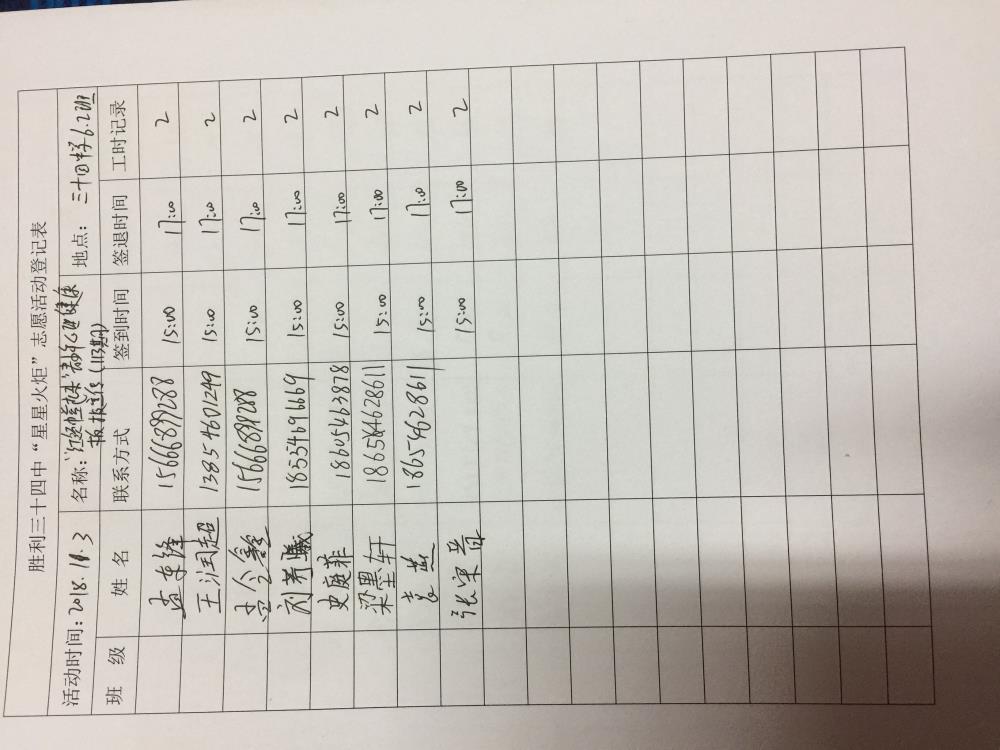 胜利三十四中“星星火炬”志愿活动登记表
活动时间:2018.11.3 名称:“红领巾 心理健康 地点:三十四中学6.2班
板报宣传(113期)
班 级 姓 名 联系方式 签到时间 签退时间 工时记录
孟李锋 15666899288 15:00 17:00 2
王润超 13854601249 15:00 17:00 2
孟令鑫 15666899288 15:00 17:00 2
刘芳曦 18554696669 15:00 17:00 2
史庭菲 18605463878 15:00 17:00 2
梁墨轩 18654628611 15:00 17:00 2
袁燕 18654628611 15:00 17:00 2
张 15:00 17:00 2